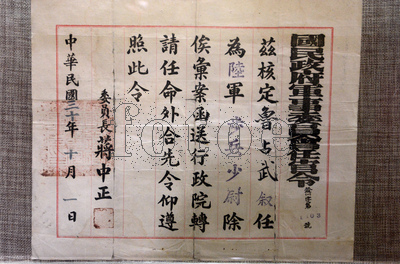 國民政府軍事委員會任官令
茲核定魯占武叙任
為陸軍 少尉除
俟彙案函送行政院轉
請任命外合先令仰遵
照此令
委員長 蔣中正
中華民國三十年十月一日